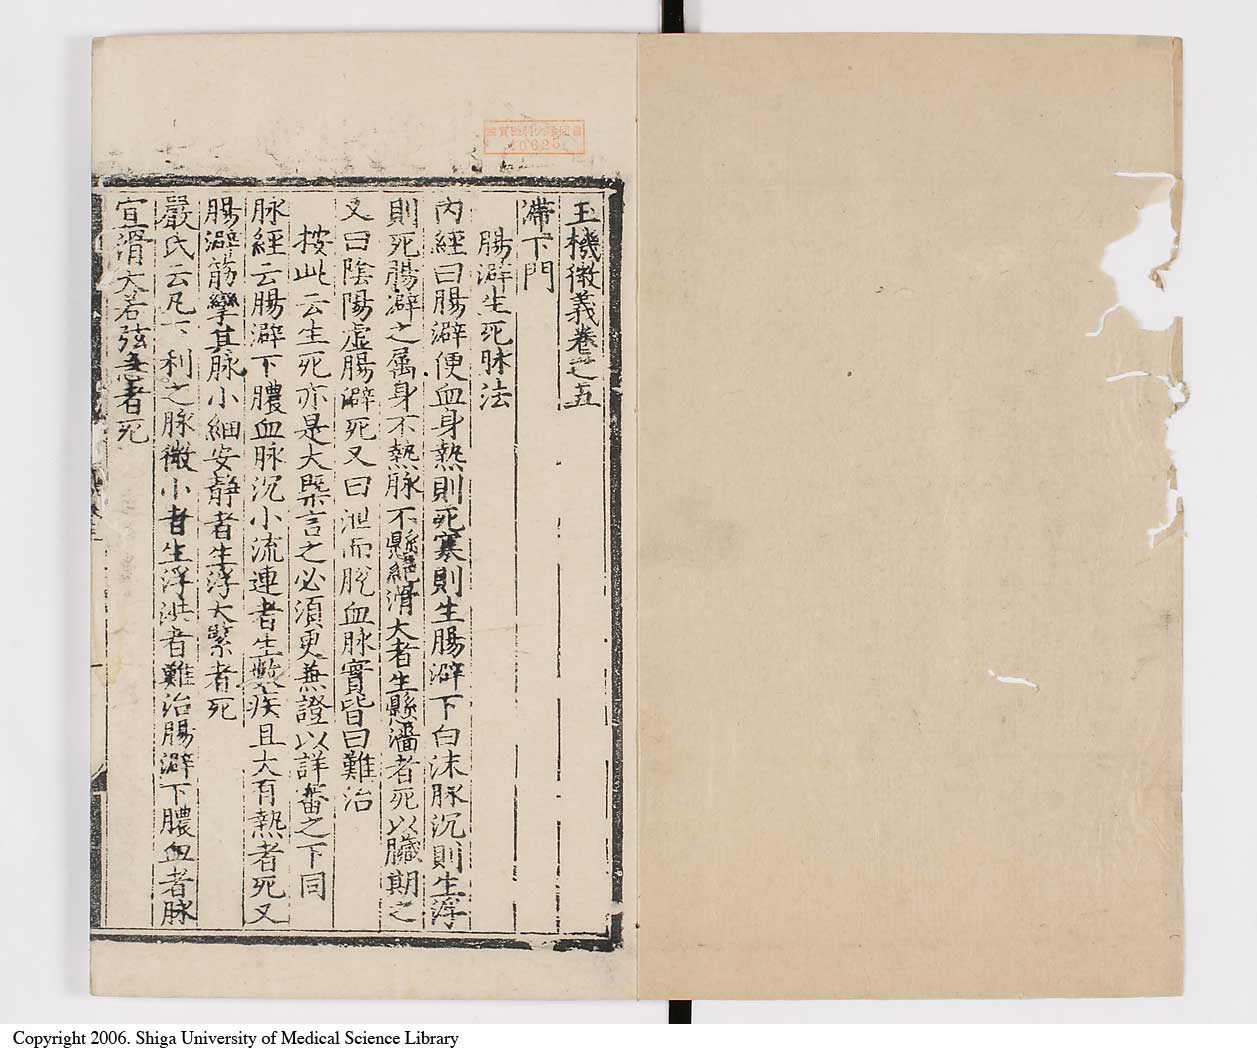 玉機微義卷之五
滯下門
腸澼生死脉法
內經曰腸澼便血身熱則死寒則生腸澼下白沫脉沉則生浮
則死腸澼之屬身不熱脉不懸絕滑大者生懸濇者死以臟期之
又曰陰陽虛腸澼死又曰泄而脫血脉實皆曰難治
按此云生死亦是大槩言之必須更兼證以詳審之下同
脉經云腸澼下膿血脉沉小流連者生數疾且大有熱者死又
腸澼筋攣其脉小細安靜者生浮大緊者死
嚴氏云凡下利之脉微小者生浮洪者難治腸澼下膿血者脉
宜滑大若弦急者死
10625
Copyright 2006. Shiga University of Medical Science Library